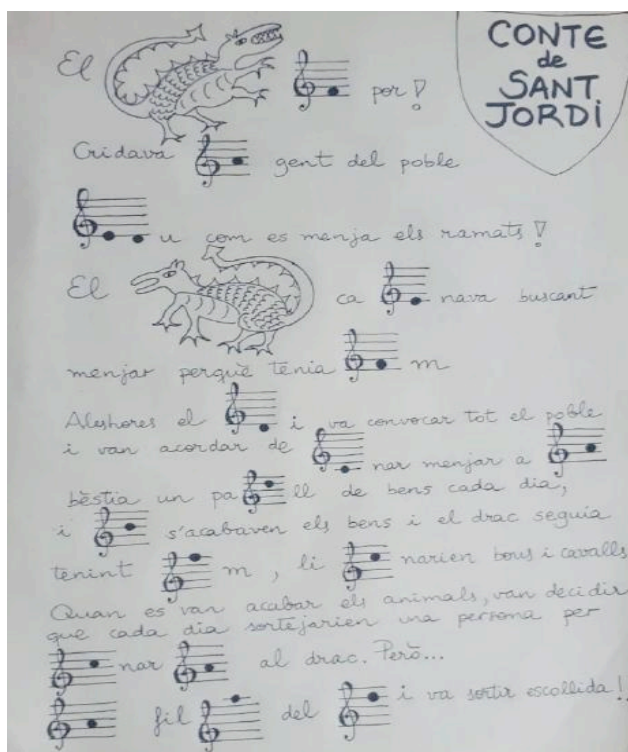 CONTE
de
SANT
JORDI
El por!
Cridava gent del poble
u com es menja els ramats!
El ca nava buscant
menjar perquè tenia m
Aleshores el i va convocar tot el poble
i van acordar de nar menjar a
bèstia un pa ll de bens cada dia,
i s'acabaven els bens i el drac seguia
tenint m, li narien bous i cavalls
Quan es van acabar els animals, van decidir
que cada dia sortejarien una persona per
nar al drac. Però...
fil del i va sortir escollida!